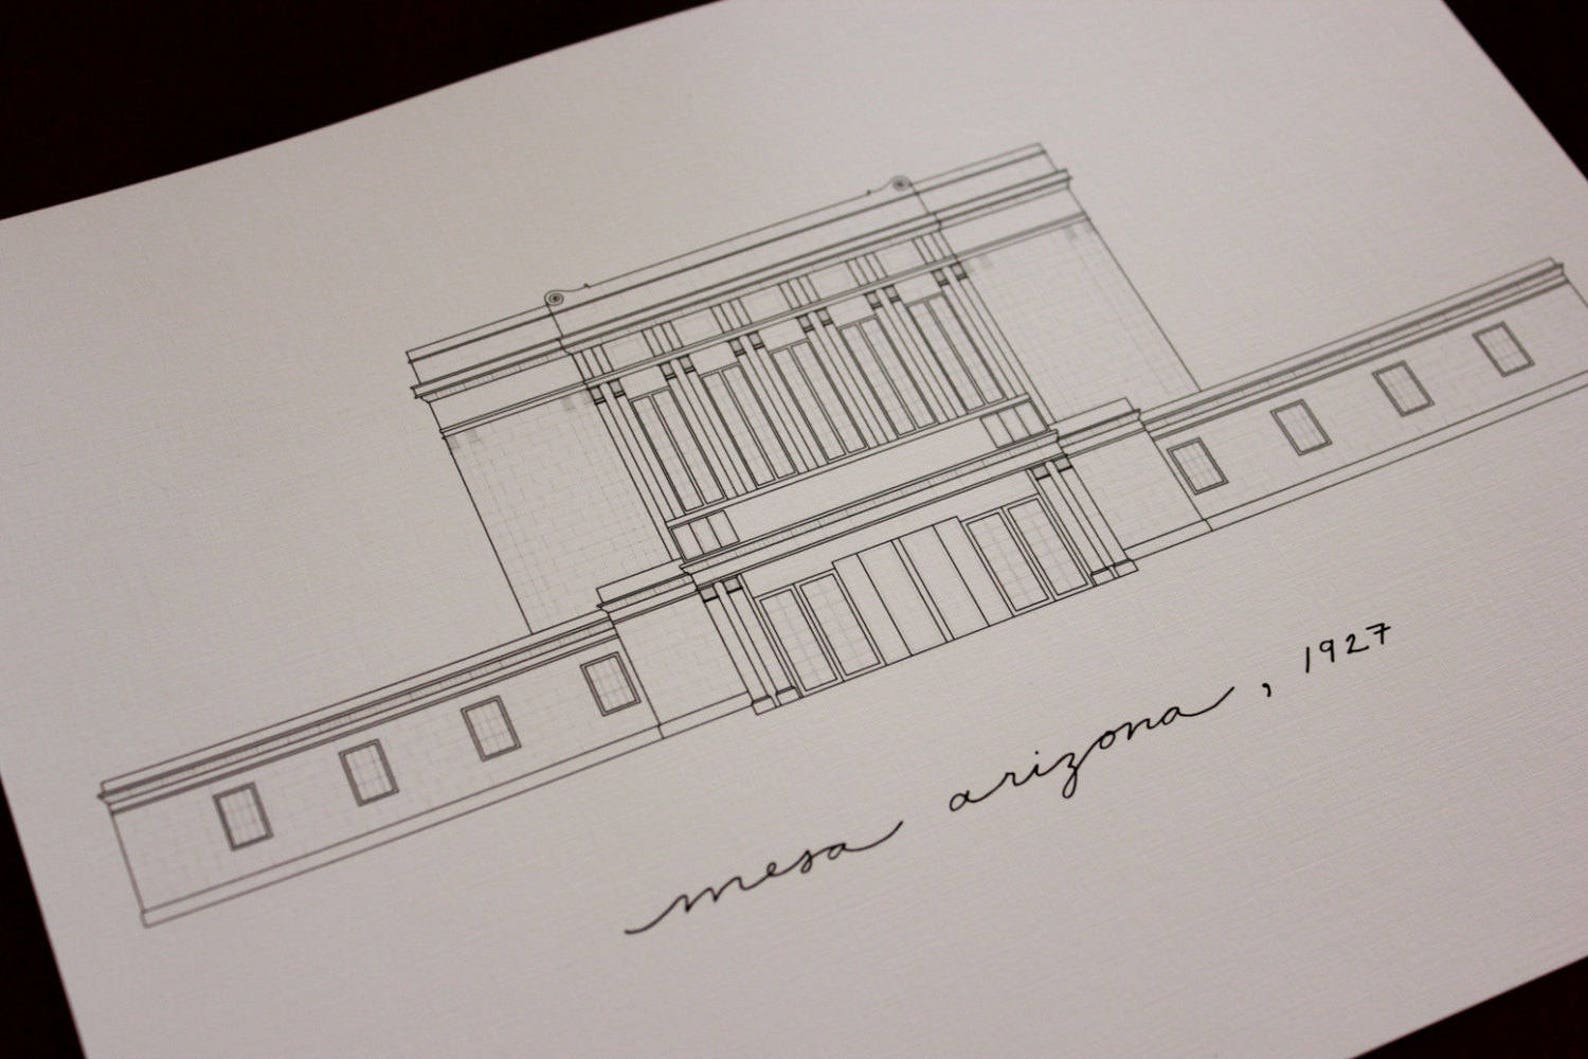 mesa arizona, 1927